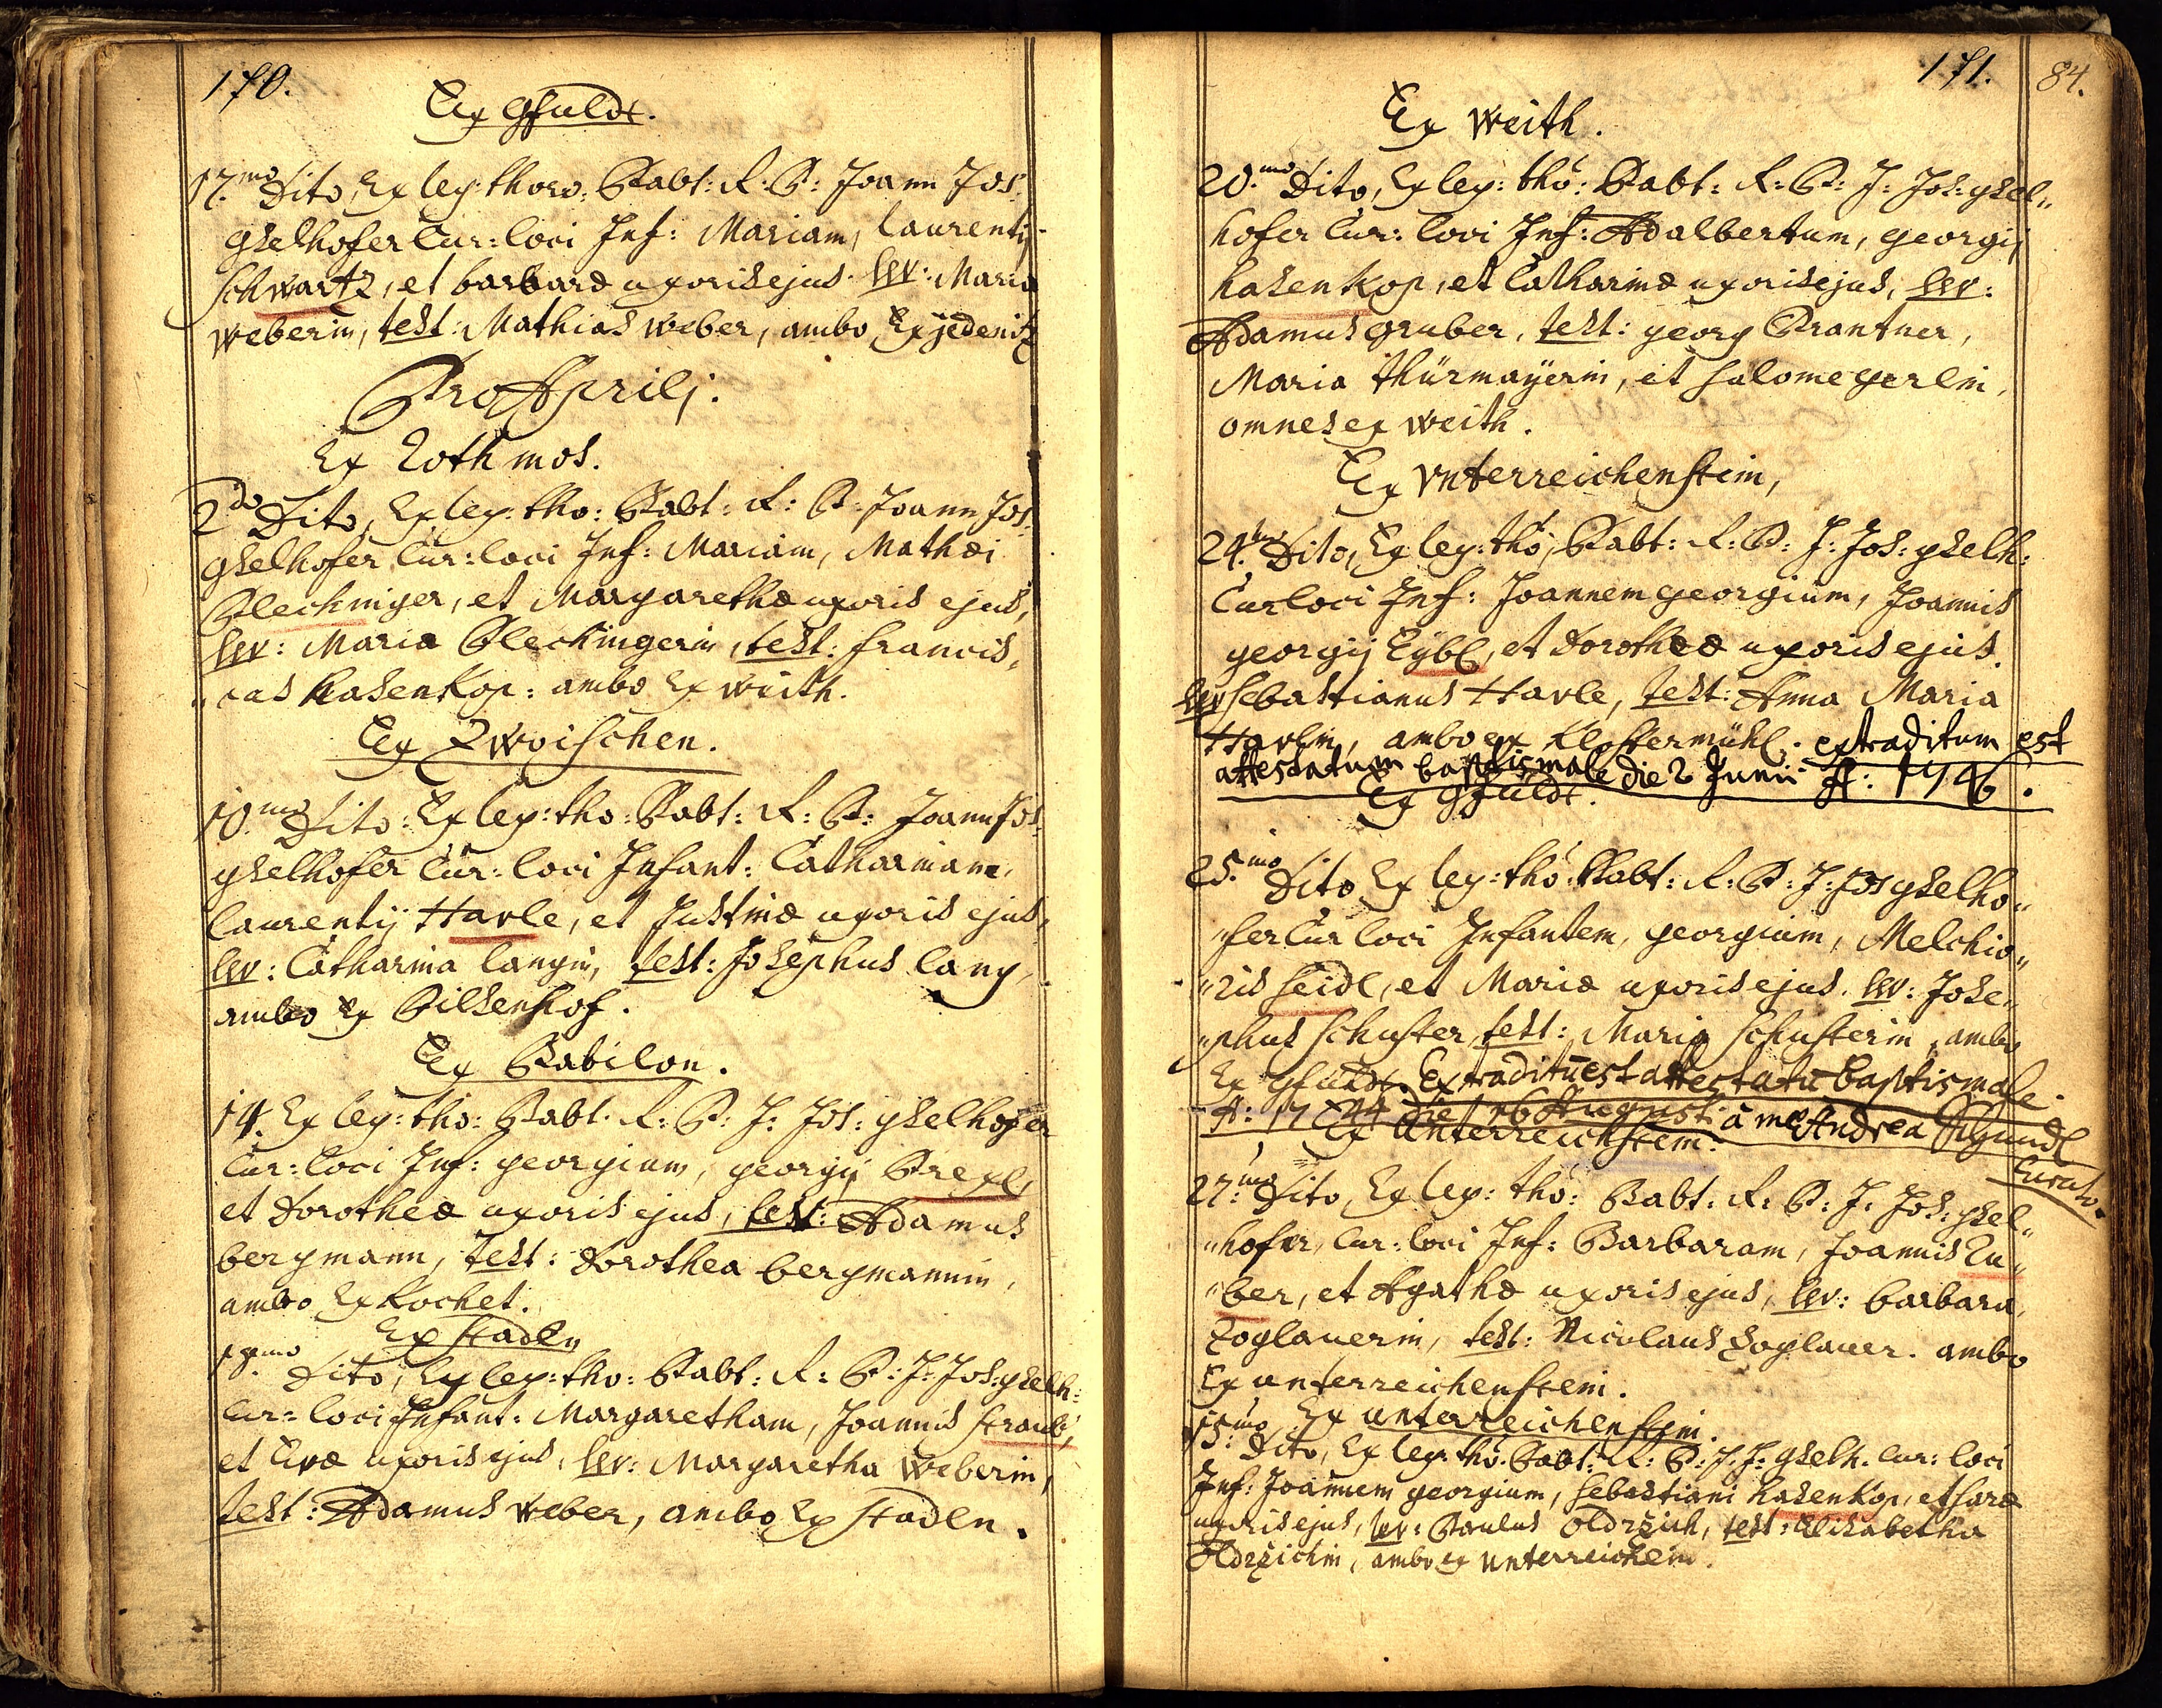 170.
Ex Gfuldt.
17.mo Dito, Ex leg: thoro: Babt: R: P: Joann Jos:
Gselhofer Cur: loci Inf: Mariam, laurentij
Schwartz, et barbaræ uxoris ejus. lev: Maria
Weberin, test: Mathias Weber, ambo Ex jedenitz
Pro Aprilj.
Ex Rothmos.
2do Dito, Ex leg: tho: Babt: R: P: Joann Jos:
gselhofer Cur: loci Inf: Mariam, Mathæi
Plechinger, et Margarethæ uxoris ejus,
lev: Maria Plechingerin, test: francis,
„cus Hasenkop: ambo Ex Weith.
Ex Zwoischen.
10.mo Dito: Ex leg: tho: Babt: R: P: Joann Jos:
gselhofer Cur: loci Infant: Catharinam,
laurentij Harle, et Justinæ uxoris ejus,
lev: Catharina langin, test: Josephus lang,
ambo Ex Pilsenhof.
Ex Babilon.
14. Ex leg: tho: Babt: R: P: J: Jos: gselhofer
Cur: loci Inf: georgium, georgij Prexl,
et Dorotheæ uxoris ejus, lev: Adamus
bergmann, test: Dorothea bergmannin,
ambo Ex Kochet.
Ex Stadln
18.mo Dito, Ex leg: tho: Babt: R: P: J: Jos: gselh:
Cur: loci Infant: Margaretham, Joannis Straub,
et Evæ uxoris ejus, lev: Margaretha Weberin,
test: Adamus Weber, ambo Ex Stadln.
171. 84.
Ex Weith.
20.mo Dito, Ex leg: tho: Babt: R: P: J: Jos: gsel„
hofer Cur: loci Inf: Adalbertum, georgij
hasenkop, et Catharinæ uxoris ejus, lev:
Adamus gruber, test: georg Prantner,
Maria thürmayerin, et Salome gerlin,
omnes ex Weith.
Ex Vnterreichenstein,
24.to Dito, Ex leg: tho, Babt: R: P: J: Jos: gselh:
Cur loci Inf: Joannem georgium, Joannis
georgij Eybl, et Dorotheæ uxoris ejus.
lev Sebastianus Harle, test: Anna Maria
Harlin, ambo ex Klostermühl. extraditum est
attestatum baptismale die 2 Junii A: 1746.
Ex Gfuldt.
25.mo Dito Ex leg: tho: Babt: R: P: J: Jos gselho„
„fer Cur loci Infantem, georgium, Melchio„
„ris Seidl, et Mariæ uxoris ejus. lev: Jose„
„phus Schuster, test: Maria Schusterin, ambo
Ex Gfuldt. Extraditū est attestatū baptismale.
A: 1744 die 16 Augusti à me Andrea
Curato.
Ex Unterreichstein.
27.mo Dito, Ex leg: tho: Babt: R: P: J: Jos: gsel„
„hofer, Cur: loci Inf: Barbaram, Joannis Zu„
„ber, et Agathæ uxoris ejus, lev: barbara,
Zoglauerin, test: Nicolaus Zoglauer. ambo
Ex unterreichenstein.
Ex unterreichenstein.
15.mo Dito, Ex leg: tho: Babt: R: P: J: J: gselh. Cur: loci
Inf: Joannem georgium, Sebastiani hasenkop, et Saræ
uxoris ejus, lev: Paulus Oldrzich, test: Elisabetha
Oldrzichin, ambo ex Unterreichein.